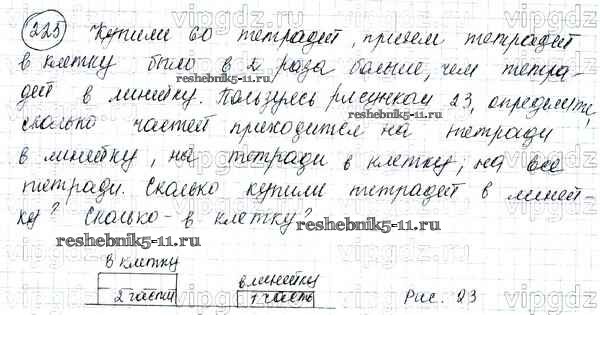 225 Купили 60 тетрадей, причем тетрадей
в клетку было в 2 раза больше, чем тетра-
дей в линейку. Пользуясь рисунком 23, определите,
сколько частей приходится на тетради
в линейку, на тетради в клетку, на все
тетради. Сколько купили тетрадей в линей-
ку? Сколько - в клетку?
reshebnik5-11.ru
reshebnik5-11.ru
в клетку
2 части
в линейку
1 часть
Рис. 23
vipgdz